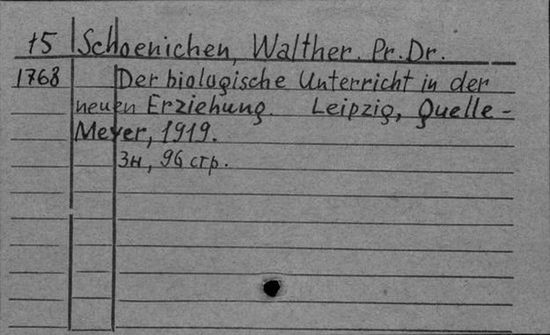 15 Schoenichen, Walther. Pr. Dr.
1768 Der biologische Unterricht in der
neuen Erziehung. Leipzig, Quelle-
Meyer, 1919.
3н, 96 стр.